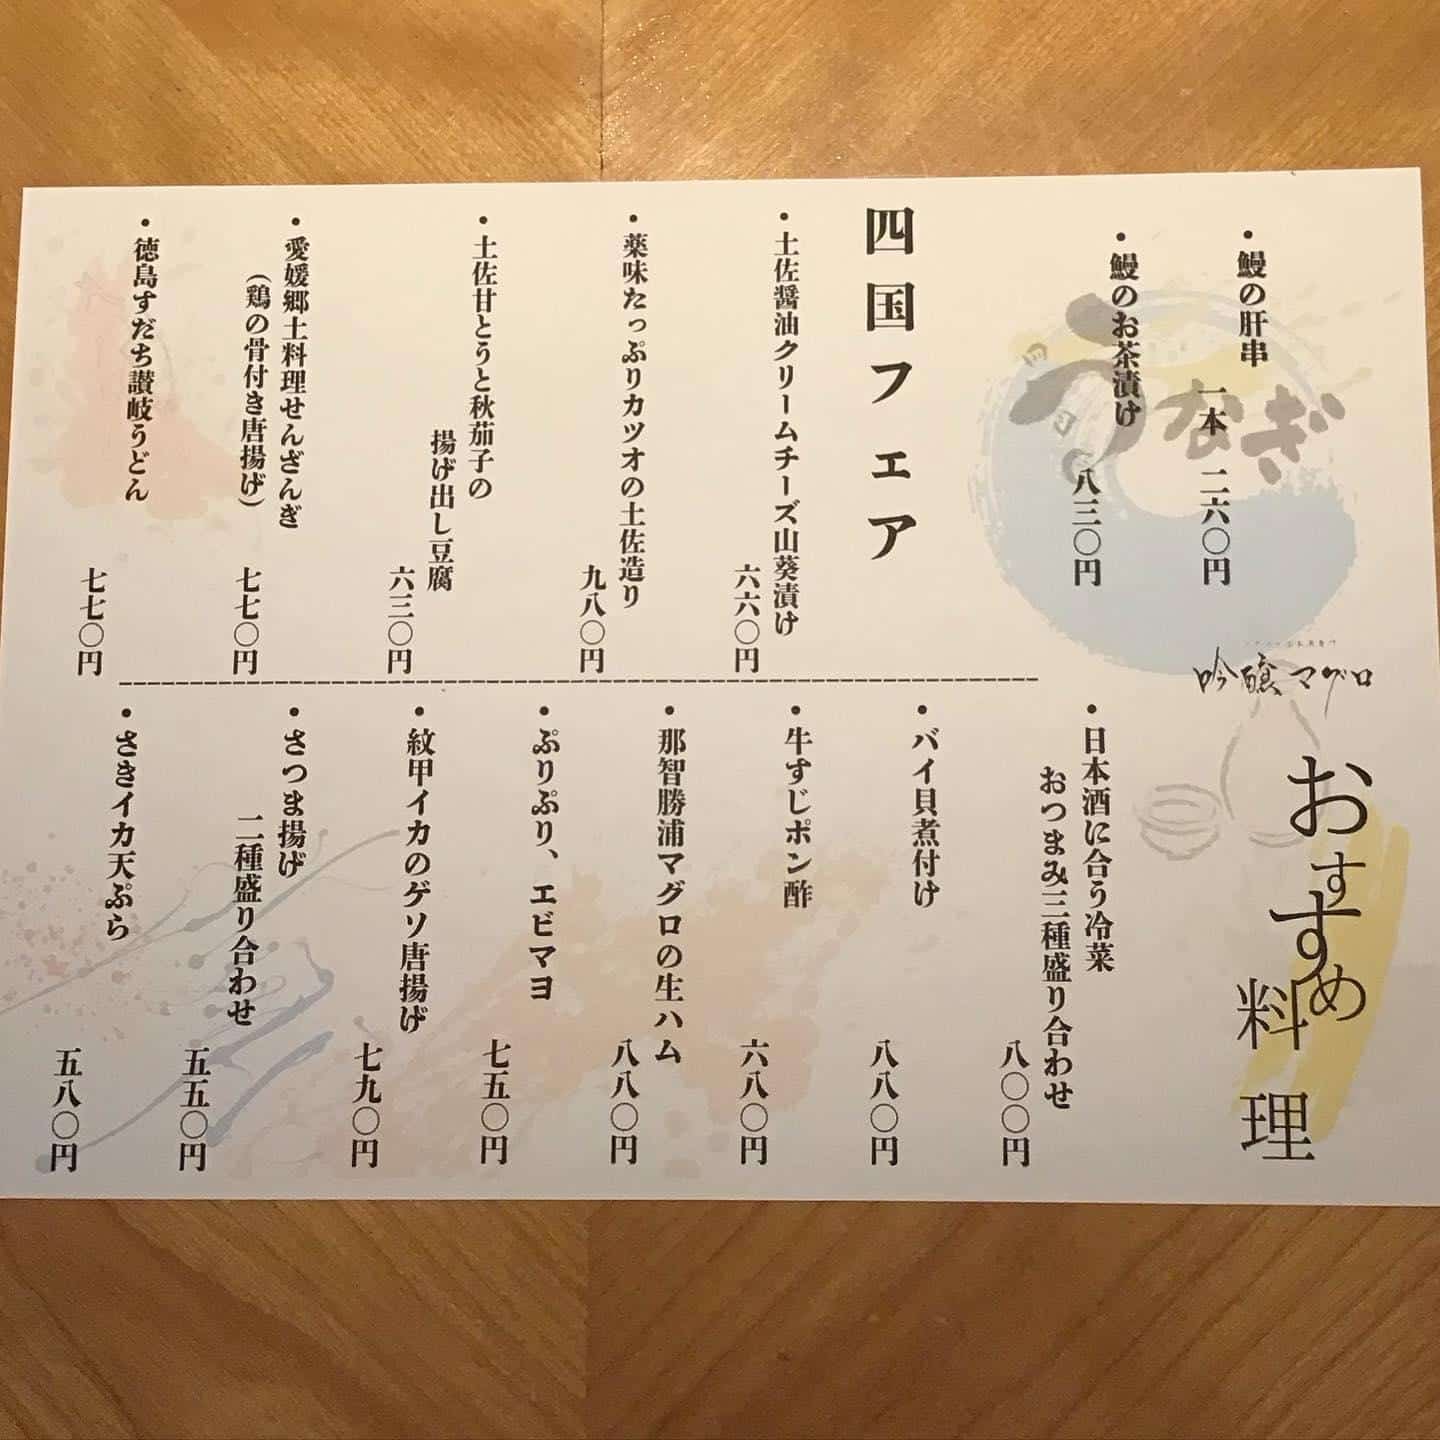 うなぎ
・鰻の肝串
一本 二六〇円
・鰻のお茶漬け
八三〇円
四国フェア
・土佐醤油クリームチーズ山葵漬け
六六〇円
・薬味たっぷりカツオの土佐造り
九八〇円
・土佐甘とうと秋茄子の
揚げ出し豆腐
六三〇円
・愛媛郷土料理せんざんぎ
(鶏の骨付き唐揚げ)
七七〇円
・徳島すだち讃岐うどん
七七〇円
吟醸マグロ
おすすめ料理
・日本酒に合う冷菜
おつまみ三種盛り合わせ
八〇〇円
・バイ貝煮付け
八八〇円
・牛すじポン酢
六八〇円
・那智勝浦マグロの生ハム
八八〇円
・ぷりぷり、エビマヨ
七五〇円
・紋甲イカのゲソ唐揚げ
七九〇円
・さつま揚げ
二種盛り合わせ
五五〇円
・さきイカ天ぷら
五八〇円